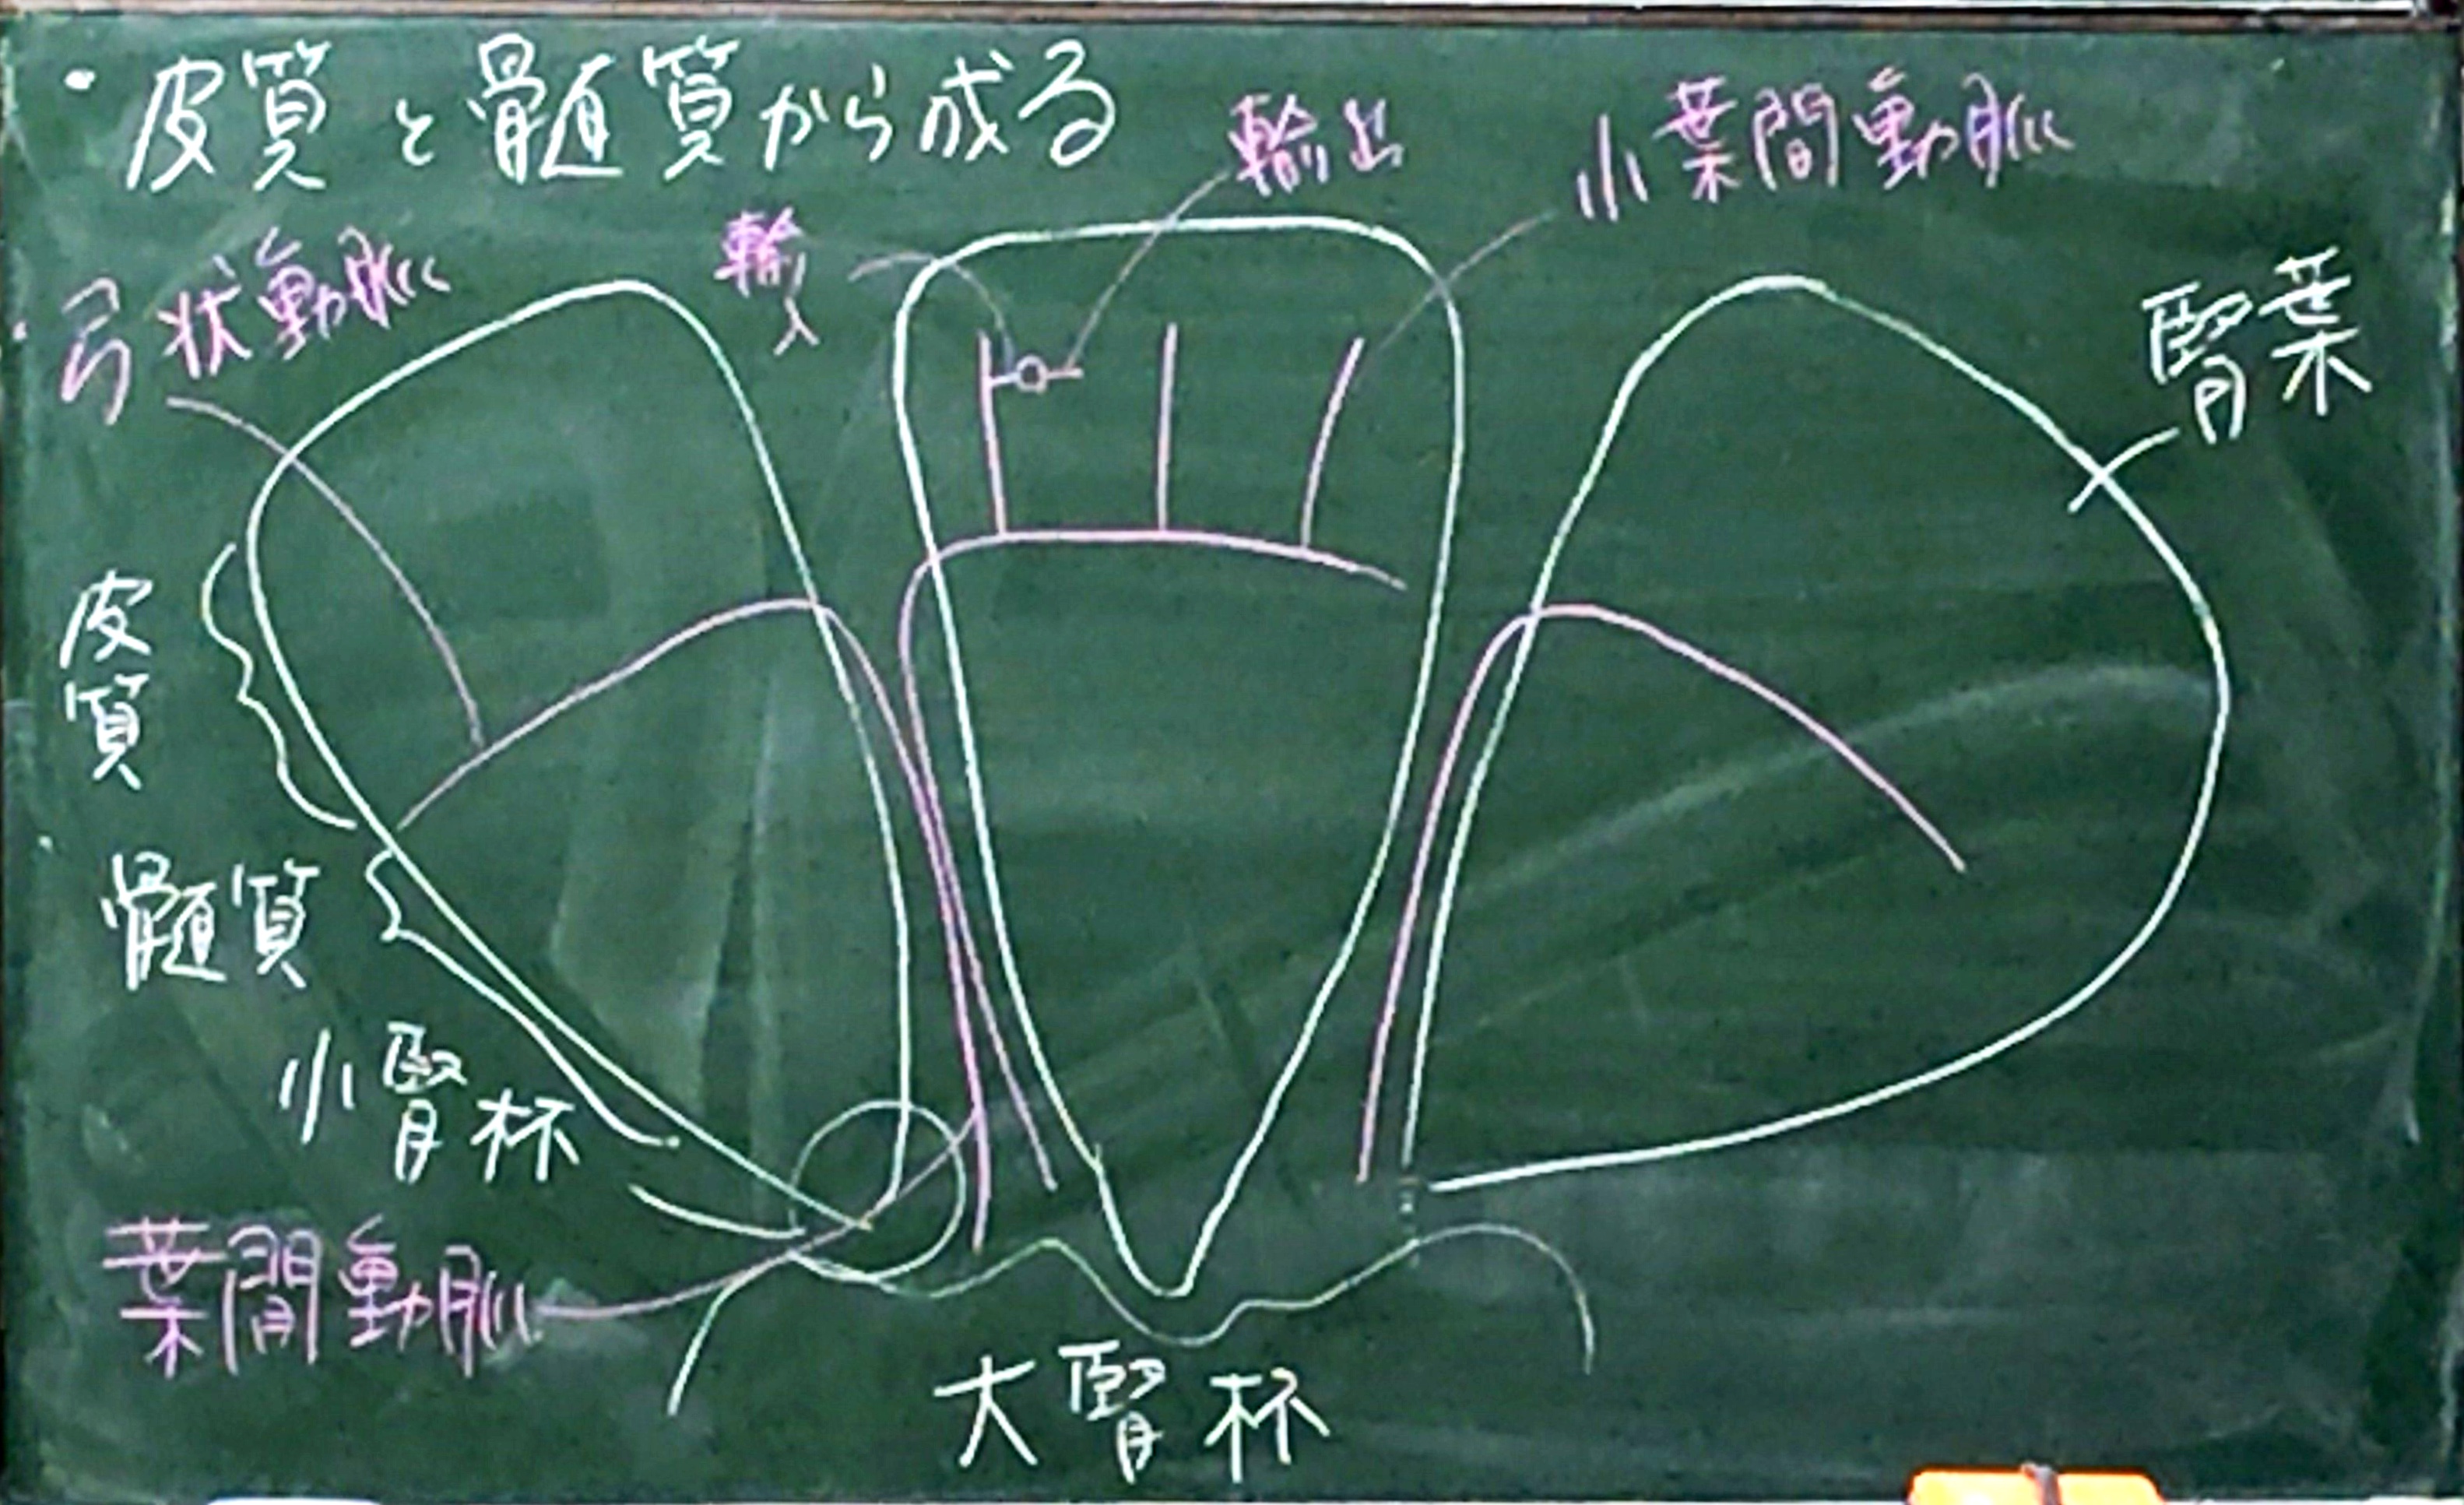 ・皮質と髄質から成る
輸出
小葉間動脈
輸入
弓状動脈
腎葉
皮質
髄質
小腎杯
葉間動脈
大腎杯